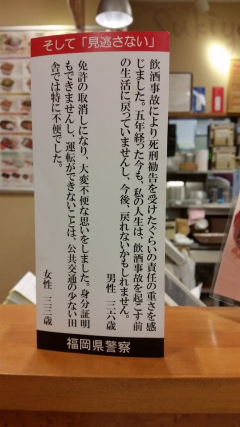 そして「見逃さない」
飲酒事故により死刑勧告を受けたぐらいの責任の重さを感
じました。五年経った今も、私の人生は、飲酒事故を起こす前
の生活に戻っていませんし、今後、戻れないかもしれません。
男性 三六歳
免許の取消しになり、大変不便な思いをしました。身分証明
もできませんし、運転ができないことは、公共交通の少ない田
舎では特に不便でした。
女性 三三歳
福岡県警察